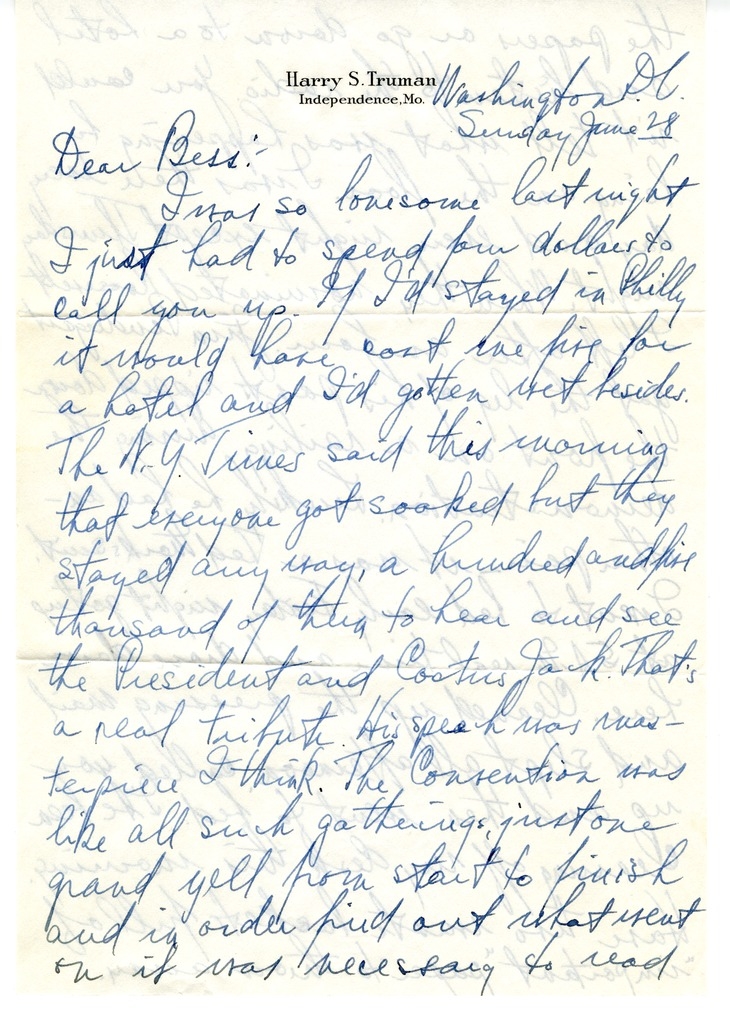 Harry S. Truman
Independence, Mo.
Washington D.C.
Sunday June 28
Dear Bess:-
I was so lonesome last night
I just had to spend four dollars to
call you up. If I'd stayed in Philly
it would have cost me five for
a hotel and I'd gotten wet besides.
The N.Y. Times said this morning
that everyone got soaked but they
stayed any way, a hundred and five
thousand of them to hear and see
the President and Coctus Jack. That's
a real tribute. His speech was mas-
terpiece I think. The Convention was
like all such gatherings, just one
grand yell from start to finish
and in order find out what went
on it was necessary to read